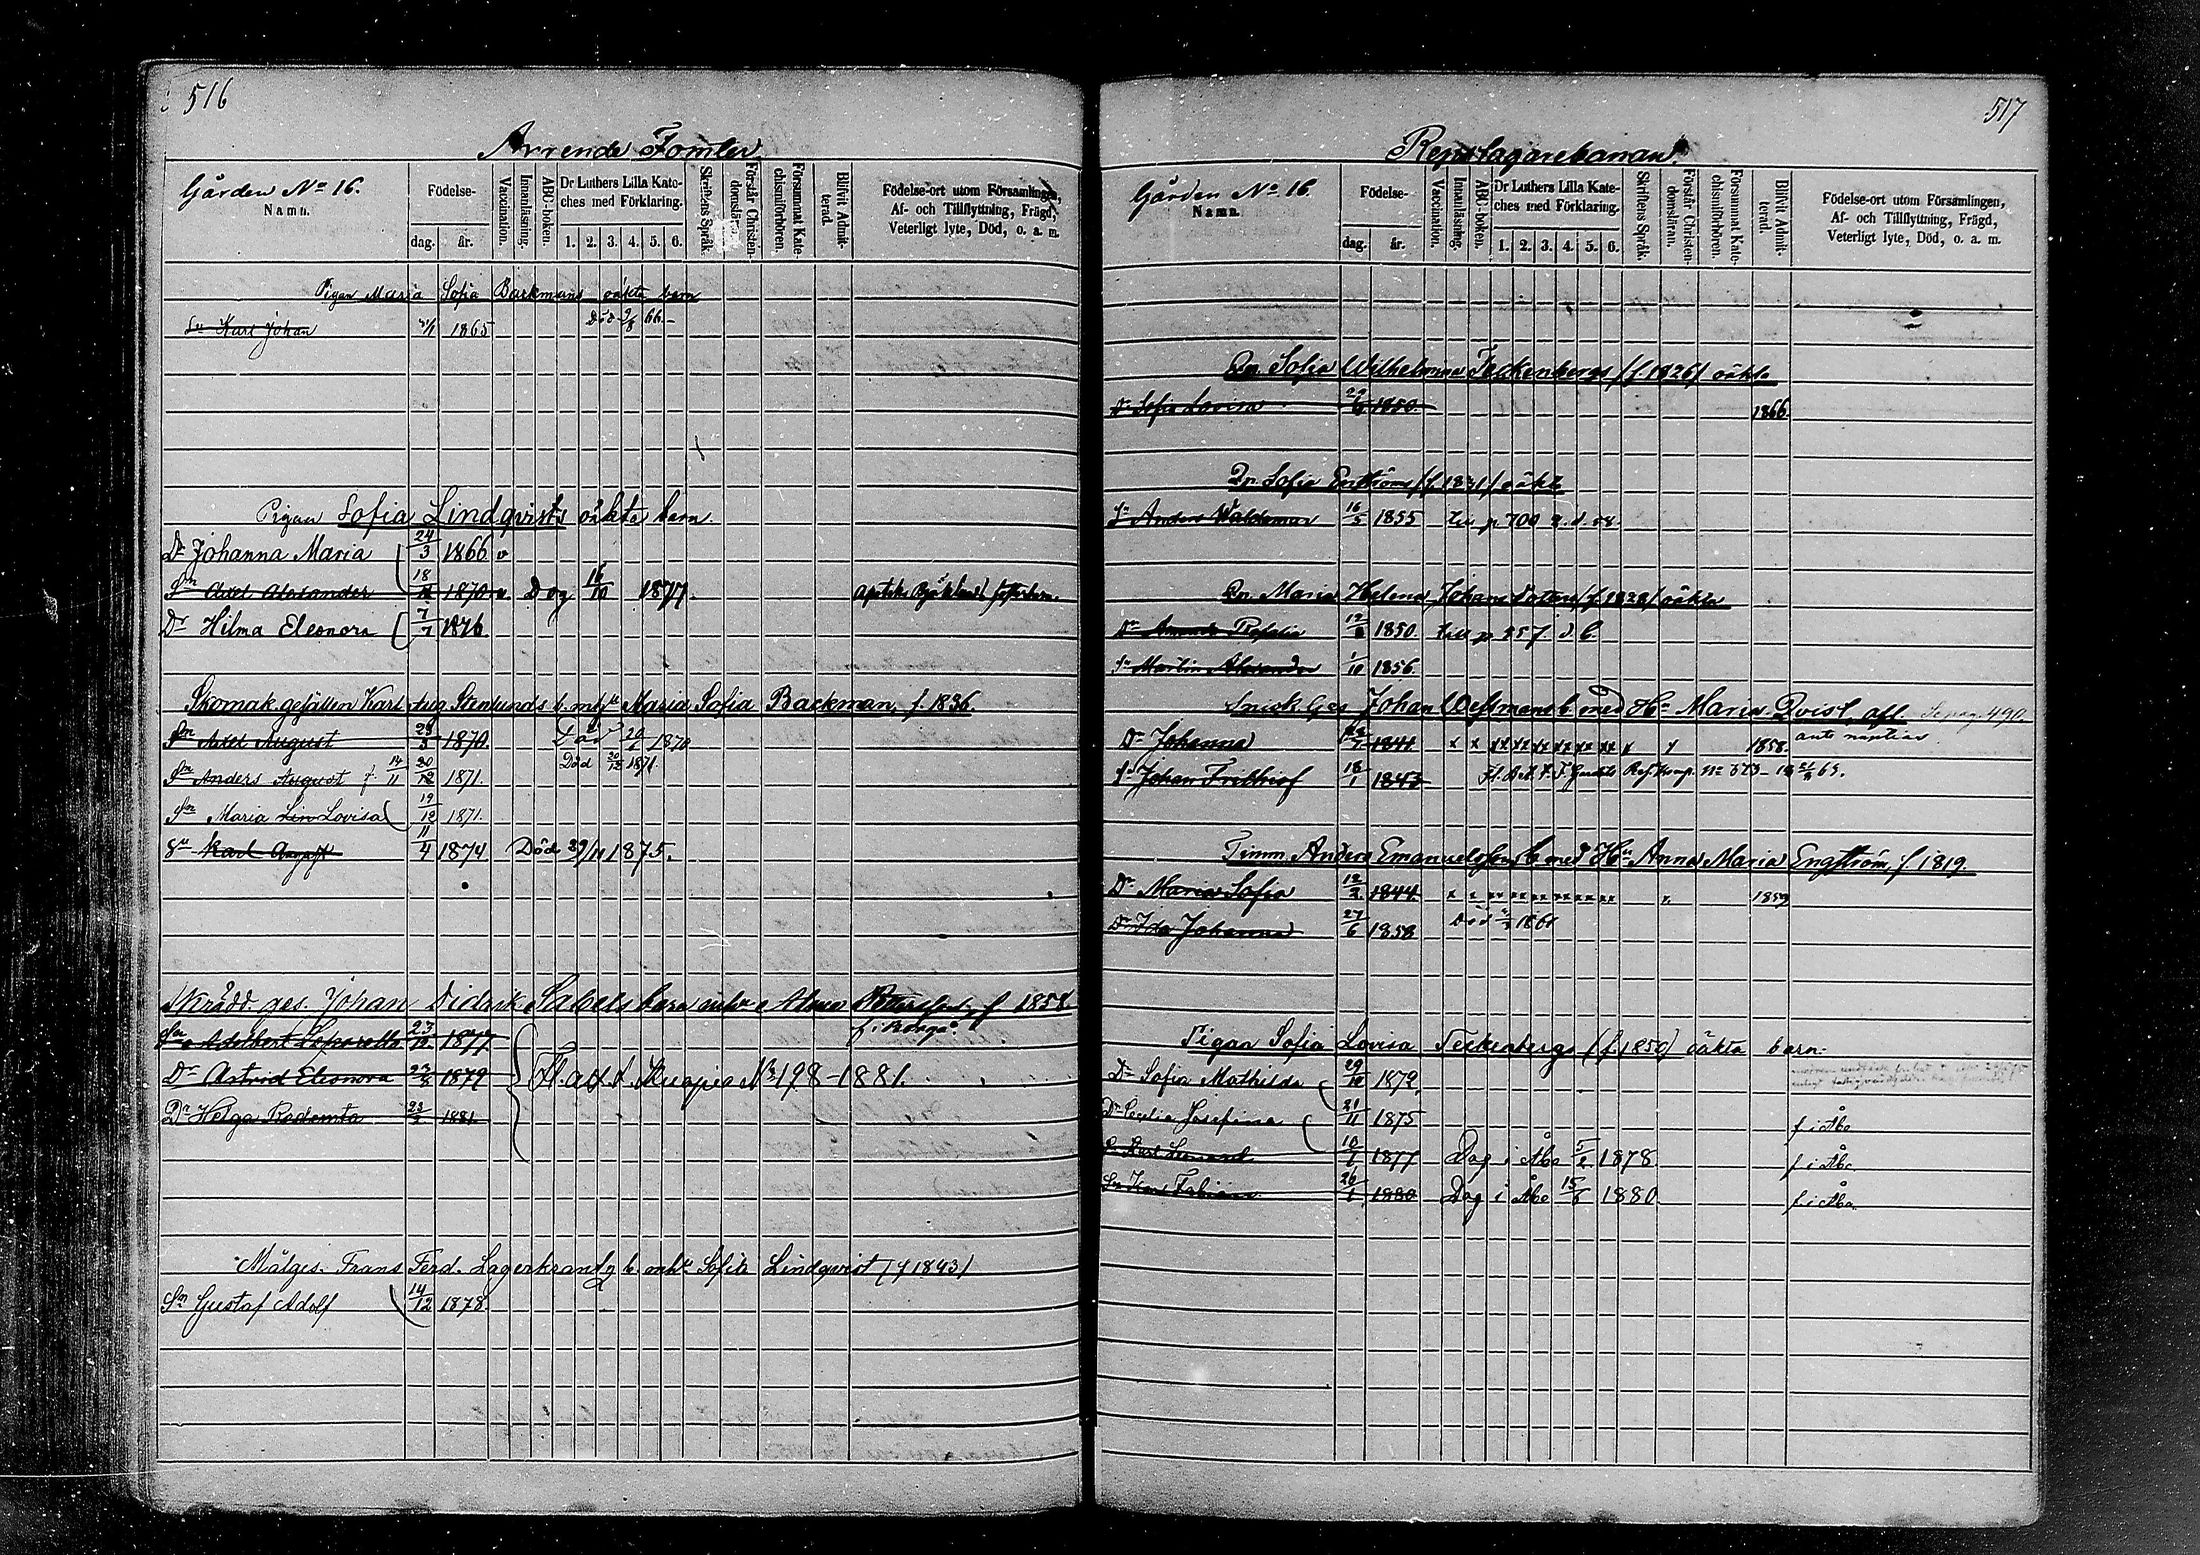 516
Arrende Tomter
Gården No 16.
Namn.
Födelse-
dag. år.
Vaccination.
Innanläsning.
ABC-boken.
Dr Luthers Lilla Kate-
ches med Förklaring.
1. 2. 3. 4. 5. 6.
Skriftens Språk.
Förstår Christen-
domsläran.
Försummat Kate-
chismiförhören.
Blifvit Admit-
terad.
Födelse-ort utom Församlingen,
Af- och Tillflyttning, Frägd,
Veterligt lyte, Död, o. a. m.
Pigan Maria Sofia Backmans oäkta barn
Sn Karl Johan 1865 Död 9/8 66.
Pigan Sofia Lindqvists oäkta barn.
Dr Johanna Maria 24/3 1866 v
Sn Axel Alexander 18/11 1870 v. Dog 16/10 1877.
Dr Hilma Eleonora 7/7 1876.
Skomak.gesällen Karl Aug Stenlunds b. m. h. Maria Sofia Backman, f. 1836.
Sn Axel August 23/3 1870. Död 20/6 1870
Sn Anders August f. 14/11 20/12 1871. Död 20/12 1871.
Maria Lin Lovisa 19/12 1871.
Sn Karl August 11/4 1874 Död 29/11 1875.
Skrädd. ges. Johan Didrik Sabels barn m. h. Alma f. 1858.
f. i Borgå.
Sn Adelbert 23/12 1877
Dr Astrid Eleonora 1879 Fl. att. t. Kuopio No 198-1881.
Dr Helga 1881
Målges. Frans Ferd. Lagerkrantz b. m. h. Sofia Lindqvist (f 1843)
Sn Gustaf Adolf 14/12 1878.
517
Repslagarebanan
Gården No 16.
Namn.
Födelse-
dag. år.
Vaccination.
Innanläsning.
ABC-boken.
Dr Luthers Lilla Kate-
ches med Förklaring.
1. 2. 3. 4. 5. 6.
Skriftens Språk.
Förstår Christen-
domsläran.
Försummat Kate-
chismiförhören.
Blifvit Admit-
terad.
Födelse-ort utom Församlingen,
Af- och Tillflyttning, Frägd,
Veterligt lyte, Död, o. a. m.
Qn Sofia Wilhelmina Teckenbergs (f. 1826) oäkta
Dr Sofia Lovisa 1850 1866
Qn Sofia Enströms (f. 1831) oäkta
Sn Anders Waldemar 16/5 1855 till p 700
Qn Maria Helena Johans Dotters (f. 1828) oäkta
Dr Amanda Rosalia 1850. till p 257
Sn Martin Alexander 1/10 1856.
Snick Ges Johan Westmans b med Hu Maria Qvist, afl. Se pag. 490
ante nuptias
Dr Johanna 1841 x x xx xx xx xx xx xx x x 1858.
Sn Johan Frithiof 18/1 1843
Timm Anders Emanuelssons b med Hu Anna Maria Engström, f 1819.
Dr Maria Sofia 12/2 1844 x x xx xx xx xx xx xx 1859
Dr Ida Johanna 27/6 1858 Död 1861
Pigan Sofia Lovisa Teckenbergs (f. 1850) oäkta barn:
Dr Sofia Mathilda 29/10 1872
Dr Cecilia Josefina 21/11 1875 f i Åbo
Sn Karl Leonard 1877 Dog i Åbo 5/2 1878. f i Åbo
Sn Karl Fabian 26/1 1880 Dog i Åbo 15/6 1880. f. i Åbo.